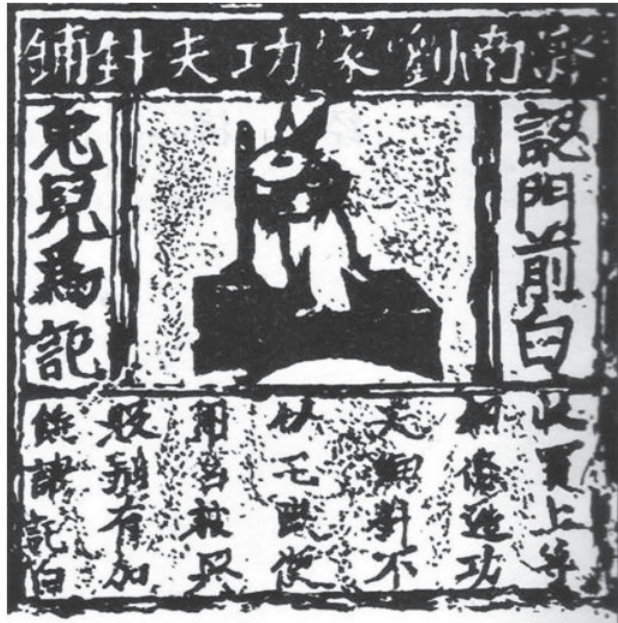 濟南劉家功夫針鋪
認門前白
兔兒為記
收買上等
鋼條造功
夫細針不
誤宅院使
用若被興
販別有加
饒請記白